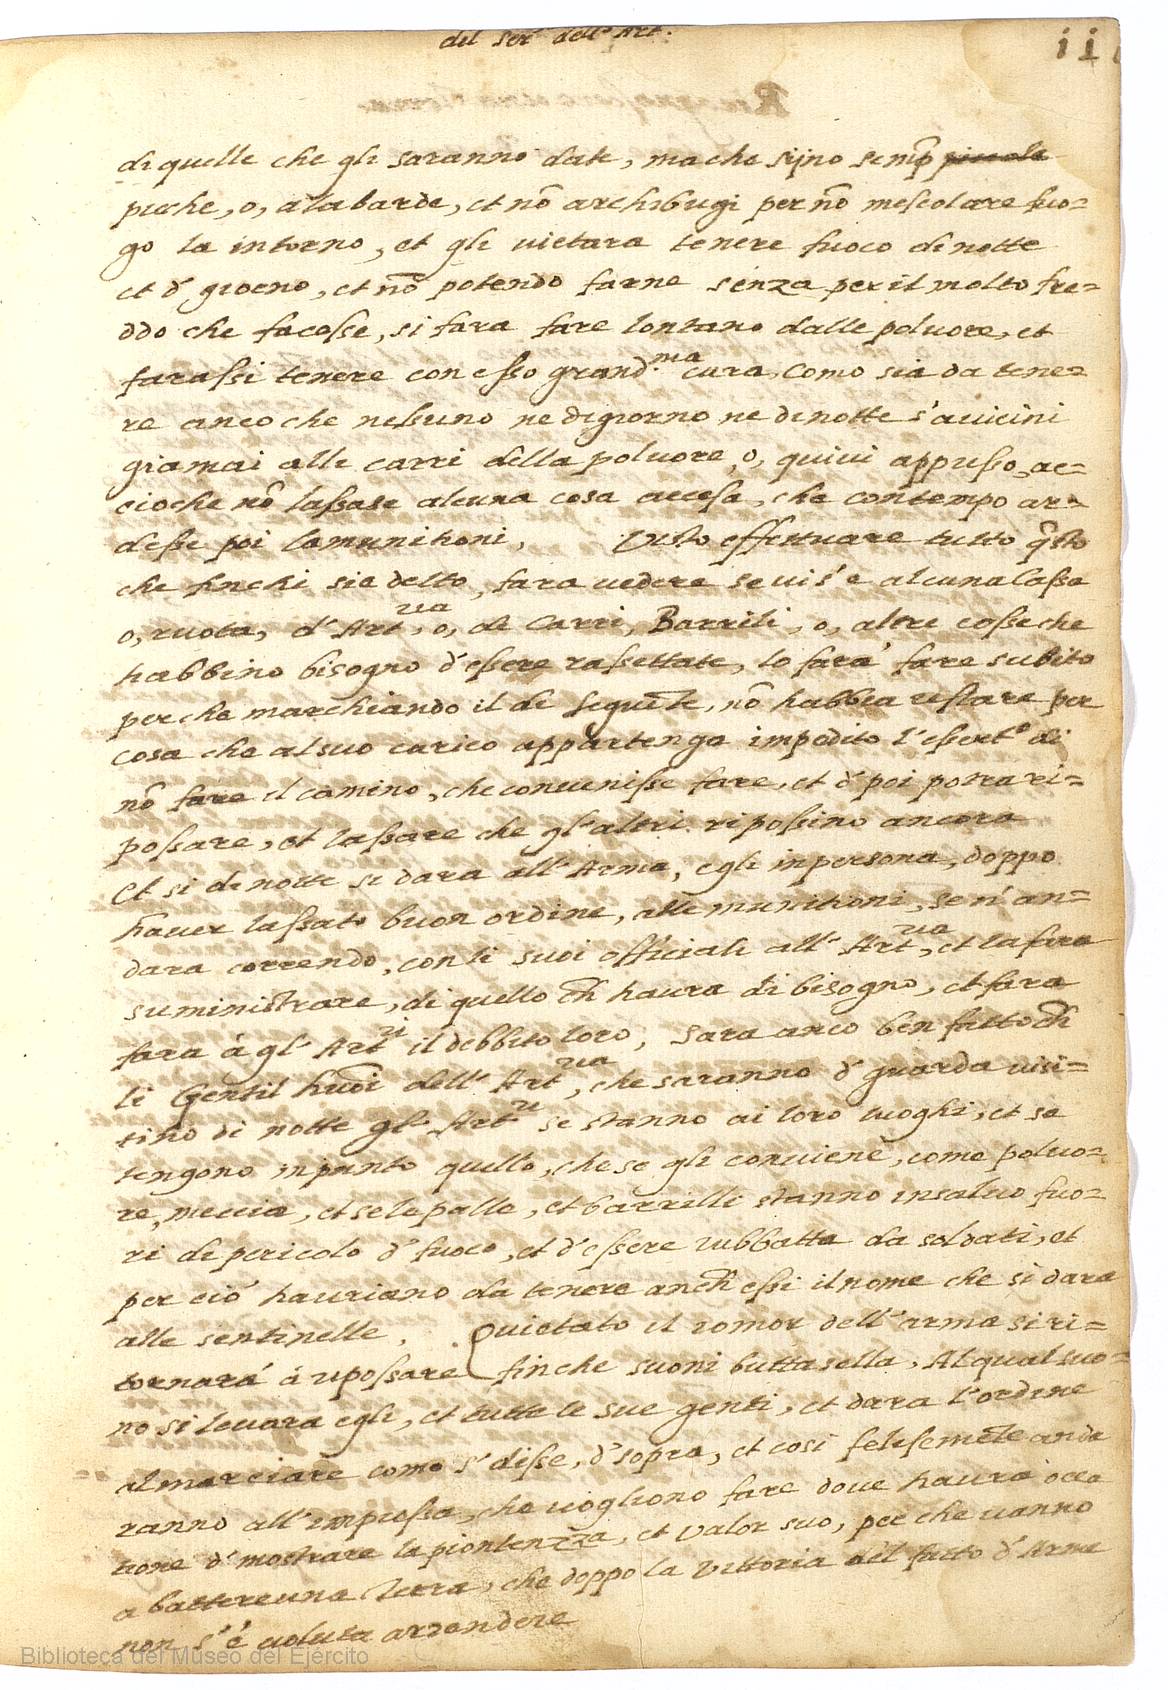 del Ser dell'Art.
11
di quelle che gli saranno date, ma che sijno semp piccole
picche, o, alabarde, et nõ archibugi per nõ mescolare fuo=
go la intorno, et gli vietara tenere fuoco di notte
et d' giorno, et nõ potendo farne senza per il molto fre=
ddo che facesse, si fara fare lontano dalle poluore, et
farassi tenere con esso grand.ma cura, Como sia da tene=
re anco che nessuno ne di giorno ne di notte s'auicini
giamai alli carri della poluore, o, quiui appresso, ac=
cioche nõ lassase alcuna cosa accesa, che con tempo ar=
desse poi la munitioni, Visto effettuare tutto q̃sto
che finchi sie detto, fara vedere se vis'e alcuna lassa
o, ruota, d'Art.ria, o, di Carri, Barrili, o, altre cosse che
habbino bisogno d'essere rassettate, lo fara' fare subito
perche marchiando il di seguẽte, nõ habbia restare per
cosa che al suo carico appartenga impedito l'essert.o di
nõ fare il camino, che conuenisse fare, et d' poi potra ri=
possare, et lassare che gl'altri ripossino ancora
Et si di notte si dara all'Arma, egli in persona, doppo
hauer lassato buon ordine, alle munitioni, se n'an=
dara correndo, con li suoi officiali all'Art.ria, et la fara
suministrare, di quello ch̃ haura di bisogno, et fara
fara à gl'Art.ri il debbito loro, Sara anco ben fatto ch̃
li Gentil huõi dell'Art.ria, che saranno d' guarda visi=
tino di notte gl'Art.ri se stanno ai loro luoghi, et se
tengono in punto quello, che se gli conuiene, como poluo=
re, meccia, et se le palle, et barrilli stanno in saluo fuo=
ri di pericolo d' fuoco, et d'essere rubbatta da soldati, et
per ciò hauriano da tenere anch̃ essi il nome che si dara
alle sentinelle. Quietato il romor dell'arma si ri=
tornará á ripossare finche suoni butta sella, Al qual suo=
no si leuara egli, et tutte le sue genti, et dara l'ordine
al marciare como s'disse, d'sopra, et cosi felisemẽte anda
ranno all'impressa, che vogliono fare doue haura occa
tione d'mostrare la prontenzza, et valor suo, per che vanno
a battere una Terra, che doppo la Vittoria del fatto d'Arme
non s'è voluta arrendere
Biblioteca del Museo del Ejército